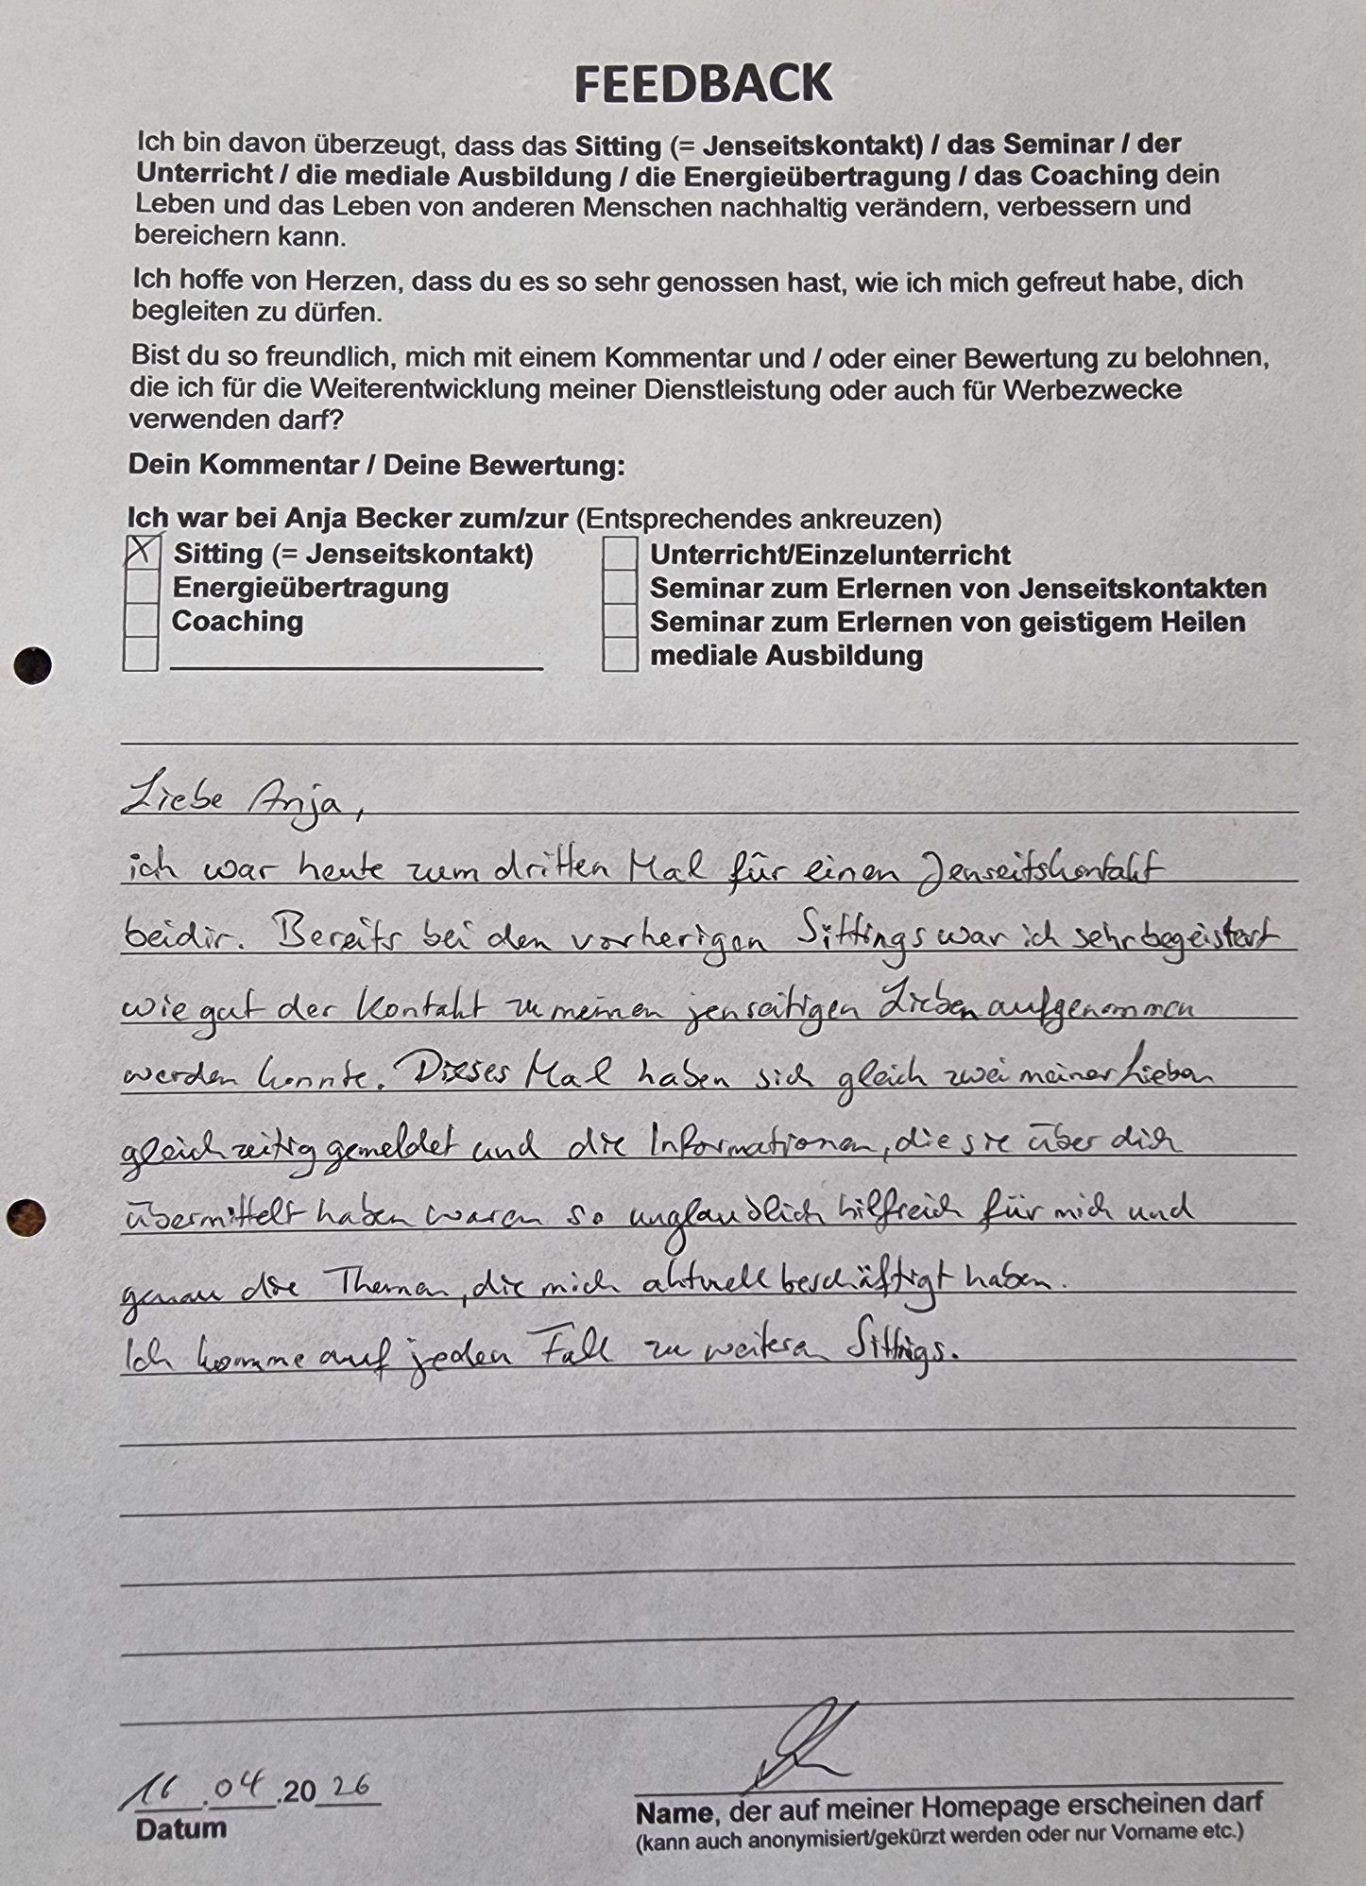 FEEDBACK
Ich bin davon überzeugt, dass das Sitting (= Jenseitskontakt) / das Seminar / der
Unterricht / die mediale Ausbildung / die Energieübertragung / das Coaching dein
Leben und das Leben von anderen Menschen nachhaltig verändern, verbessern und
bereichern kann.
Ich hoffe von Herzen, dass du es so sehr genossen hast, wie ich mich gefreut habe, dich
begleiten zu dürfen.
Bist du so freundlich, mich mit einem Kommentar und / oder einer Bewertung zu belohnen,
die ich für die Weiterentwicklung meiner Dienstleistung oder auch für Werbezwecke
verwenden darf?
Dein Kommentar / Deine Bewertung:
Ich war bei Anja Becker zum/zur (Entsprechendes ankreuzen)
X Sitting (= Jenseitskontakt) Unterricht/Einzelunterricht
Energieübertragung Seminar zum Erlernen von Jenseitskontakten
Coaching Seminar zum Erlernen von geistigem Heilen
mediale Ausbildung
Liebe Anja,
ich war heute zum dritten Mal für einen Jenseitskontakt
bei dir. Bereits bei den vorherigen Sittings war ich sehr begeistert
wie gut der Kontakt zu meinen jenseitigen Lieben aufgenommen
werden konnte. Dieses Mal haben sich gleich zwei meiner Lieben
gleichzeitig gemeldet und die Informationen, die sie über dich
übermittelt haben waren so unglaublich hilfreich für mich und
genau die Themen, die mich aktuell beschäftigt haben.
Ich komme auf jeden Fall zu weiteren Sittings.
16.04.2026
Datum
Name, der auf meiner Homepage erscheinen darf
(kann auch anonymisiert/gekürzt werden oder nur Vorname etc.)